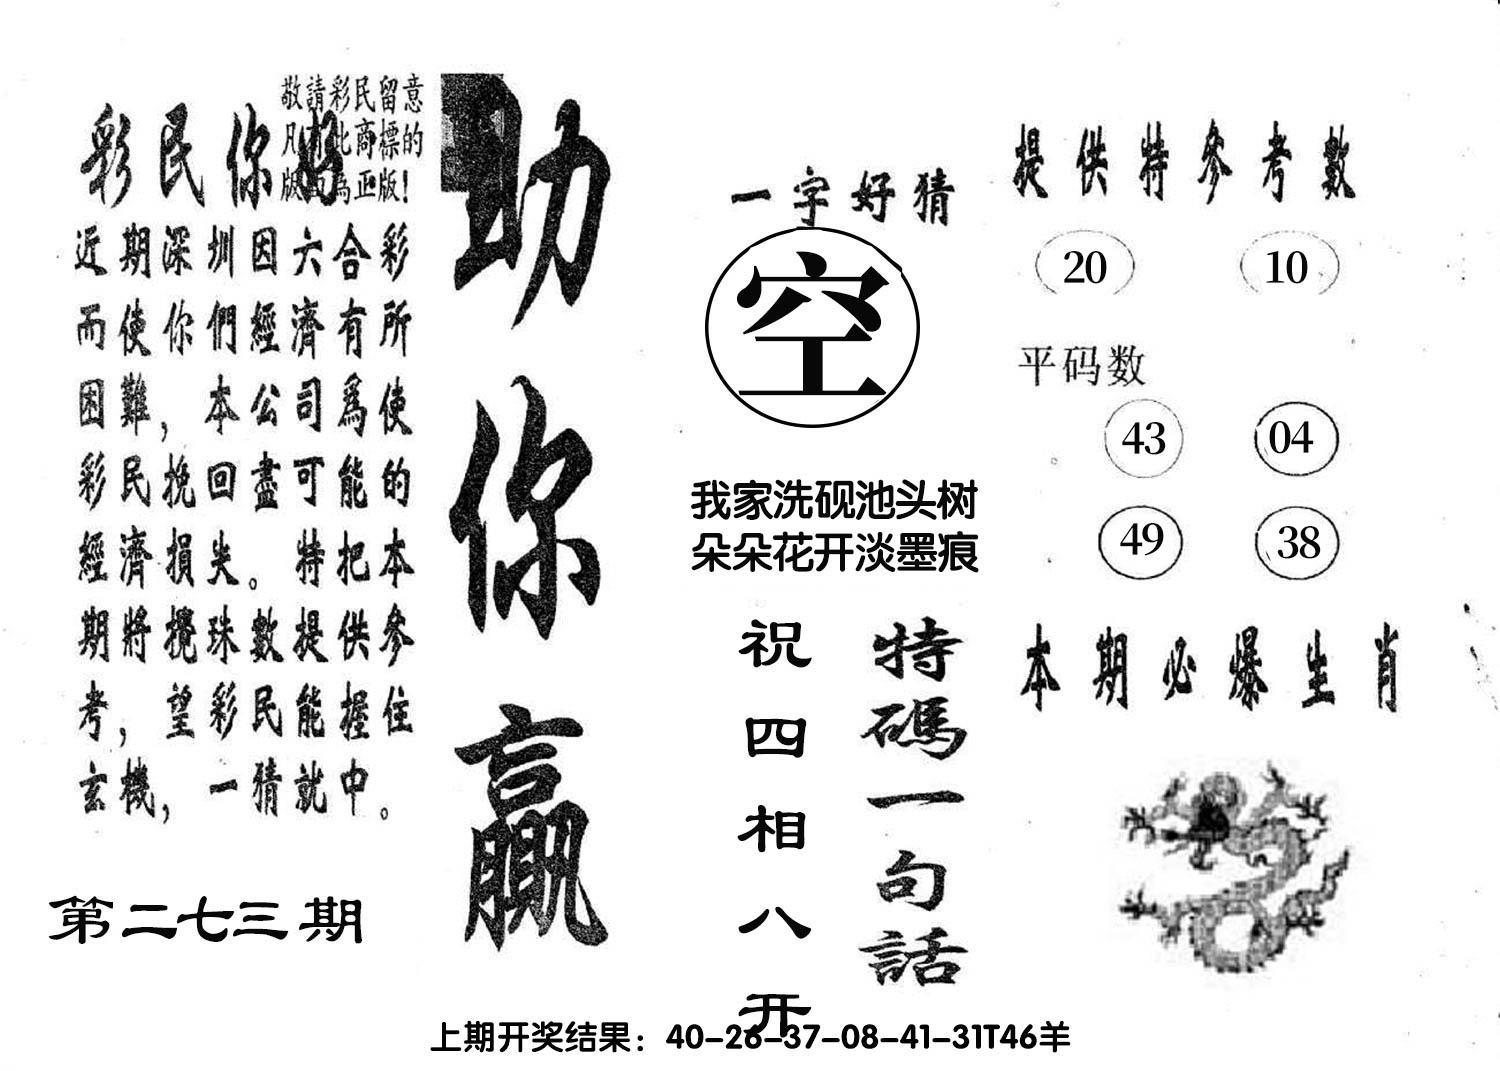 敬請彩民留意
凡有此商標的
版面為正版!
彩民你好
近期深圳因六合彩
而使你們經濟有所
困難，本公司爲使
彩民挽回盡可能的
經濟損失。特把本
期將攪珠數提供參
考，望彩民能握住
玄機，一猜就中。
第二七三期
助你贏
一字好猜
空
我家洗砚池头树
朵朵花开淡墨痕
特碼一句話
祝四相八开
提供特參考數
20 10
平码数
43 04
49 38
本期必爆生肖
上期开奖结果：40-26-37-08-41-31T46羊